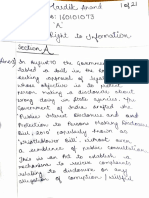 Hardik Anand 10/21
: 160101073
"A"
Right to Information
Section A
Ans In August'10 the Government
tabled a bill in the
seeking approval of legislation
whose objective is to protect
persons making disclosure about
wrong doing in state agencies. The
Government of India drafted the
"Public Interest Disclosure and
Protection to Persons Making Disclosure
Bill, 2010" commonly known as
'Whistleblowers' Bill' that
as a crusader of public corruption.
This is an Act to establish a
mechanism to receive complaints
relating to disclosure on any
allegation of corruption / wilful